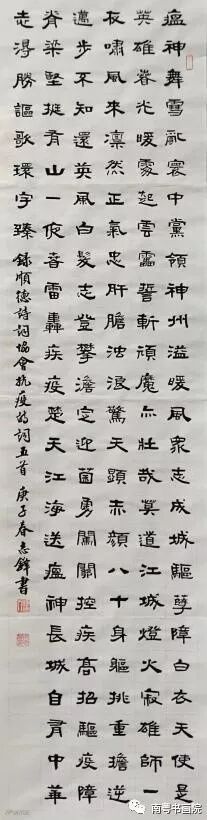 瘟神舞雪亂寰中黨領神州溢暖風衆志成城驅孽障白衣天使是
英雄春光暖霧起雲霾誓斬頑魔亦壯哉莫道江城燈火寂雄師一
夜嘯風來凜然正氣忠肝膽濁浪驚天顯赤顏八十身軀挑重擔逆
邁步不知還英風白髮志登攀澹定迎菌勇闖關控疾高招驅疫障
脊梁堅挺有山一夜春雷轟疾疫楚天江海送瘟神長城自有中華
志得勝謳歌環宇臻 錄順德詩詞協會抗疫詩詞五首 庚子春志鋒書
南粤书画院